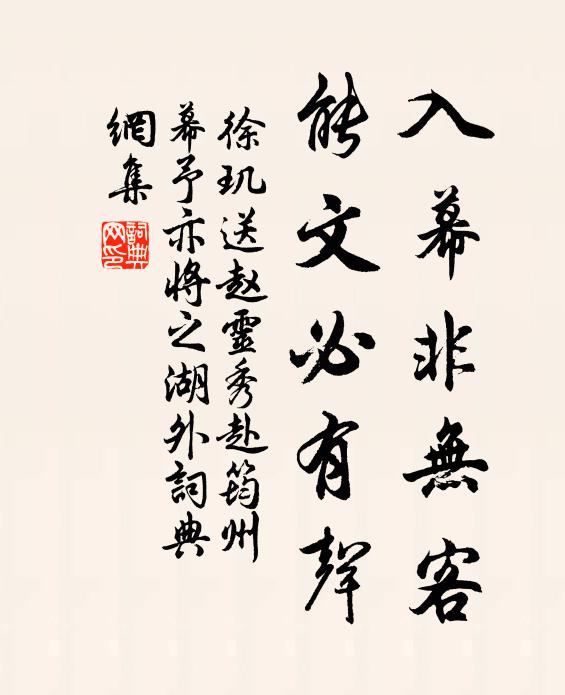 入幕非無客
能文必有聲
徐玑送赵靈秀赴筠州
幕予亦将之湖外詞典
網集
詞典
网印